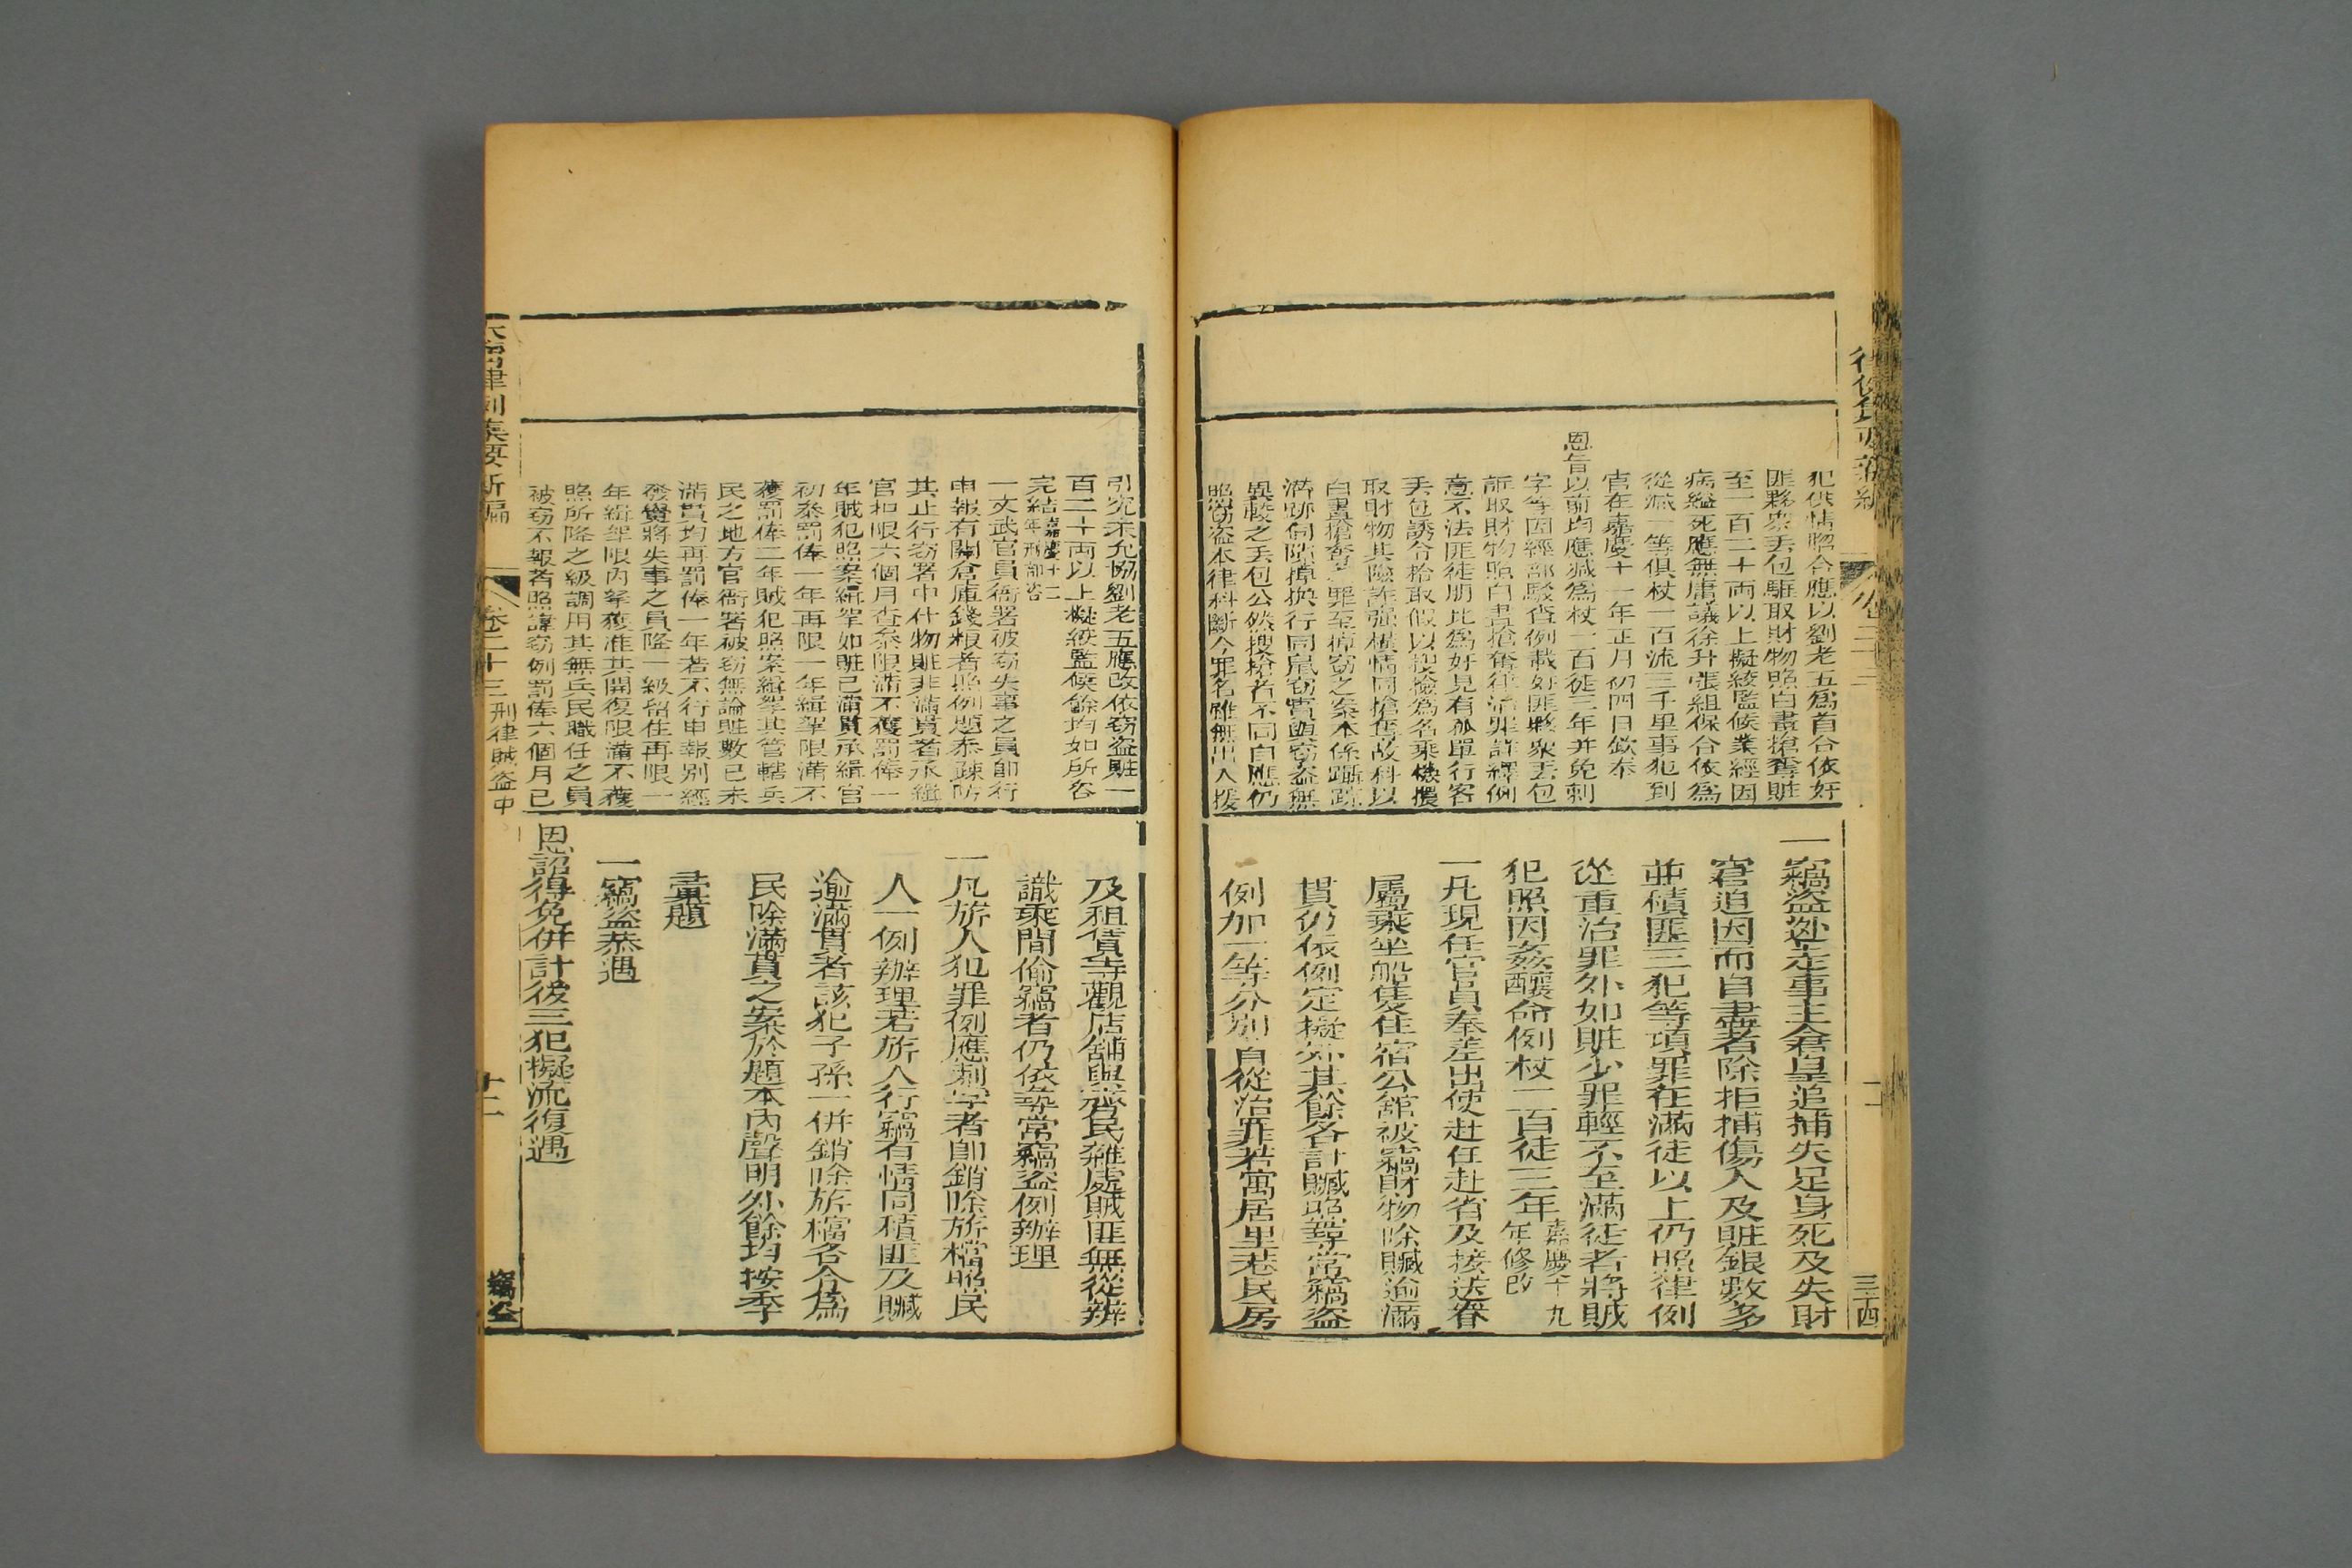 犯供情照合應以劉老五爲首合依奸
匪夥衆丟包騙取財物照白晝搶奪賍
至一百二十両以上擬絞監候業經因
病縊死應無庸議徐升張組保合依爲
從減一等俱杖一百流三千里事犯到
官在嘉慶十一年正月初四日欽奉
恩旨以前均應減爲杖一百徒三年并免刺
字等因經部駁查例載奸匪夥衆丟包
誆取財物照白晝搶奪律治罪詳繹例
意不法匪徒朋比爲奸見有孤單行客
丟包誘合拾取假以搜撿爲名乘機攫
取財物其險詐強橫情同搶奪故科以
白晝搶奪之罪至掉竊之案本係躡踪
潛跡伺隙掉換行同鼠竊實與竊盜無
異較之丟包公然搜搶者不同自應仍
照竊盜本律科斷今罪名雖無出入援
一竊盜逃走事主倉皇追捕失足身死及失財
窘迫因而自盡者除拒捕傷人及賍銀數多
並積匪三犯等項罪在滿徒以上仍照律例
從重治罪外如賍少罪輕不至滿徒者將賊
犯照因姦釀命例杖一百徒三年嘉慶十九年修改
一凡現任官員奉差出使赴任赴省及接送眷
屬乘坐船隻住宿公舘被竊財物除贓逾滿
貫仍依例定擬外其餘各計贓照尋常竊盜
例加一等分別首從治罪若寓居里巷民房
三十四
引究未允協劉老五應改依竊盜賍一
百二十両以上擬絞監候餘均如所咨
完結嘉慶十二年刑部咨
一文武官員衙署被竊失事之員卽行
申報有關倉庫錢粮者照例題叅疎防
其止行竊署中什物賍非滿貫者承緝
官扣限六個月查叅限滿不獲罰俸一
年賊犯照案緝拏如賍已滿貫承緝官
初叅罰俸一年再限一年緝拏限滿不
獲罰俸二年賊犯照案緝拏其管轄兵
民之地方官衙署被竊無論賍數已未
滿貫均再罰俸一年若不行申報別經
發覺將失事之員降一級留任再限一
年緝拏限內拏獲准其開復限滿不獲
照所降之級調用其無兵民職任之員
被竊不報者照諱竊例罰俸六個月已
及租賃寺觀店舖與齊民雜處賊匪無從辨
識乘間偷竊者仍依尋常竊盜例辦理
一凡旂人犯罪例應刺字者卽銷除旂檔照民
人一例辦理若旂人行竊有情同積匪及贓
逾滿貫者該犯子孫一併銷除旂檔各令爲
民除滿貫之案於題本內聲明外餘均按季
彙題
一竊盜恭遇
恩詔得免併計後三犯擬流復遇
大淸律例集要新編
卷二十三刑律賊盜中
十二
竊盜